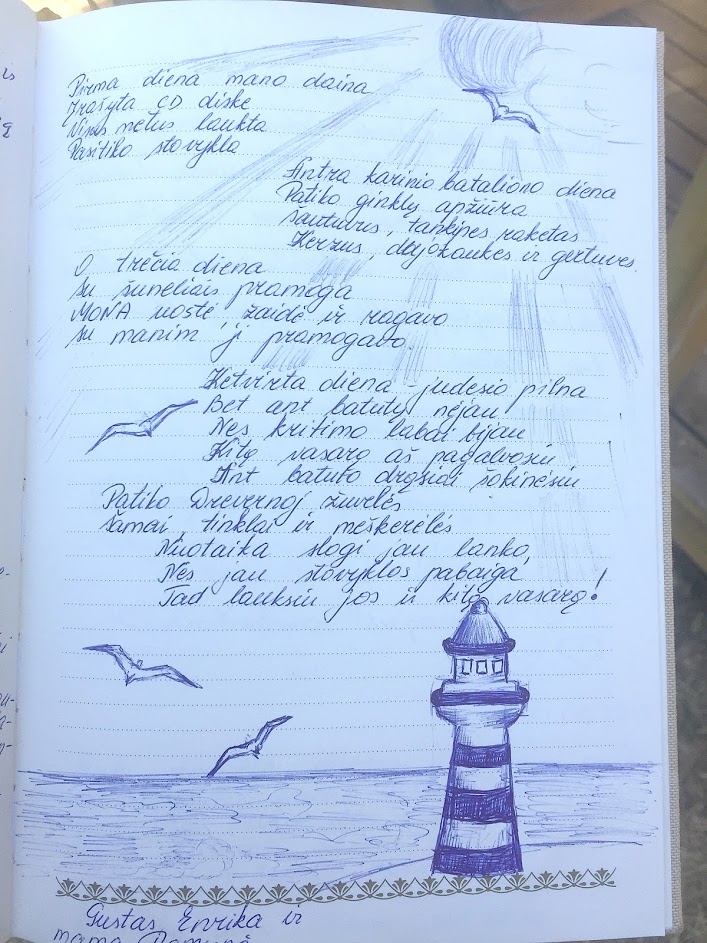 Pirma diena mano daina
Įrašyta CD diske
Visus metus laukta
Pasitiko stovykla
Antra karinio bataliono diena
Patiko ginklų apžiūra
šautuvus, tankines raketas
Kerzus, dujokaukes ir gertuves.
O trečia diena
su šuneliais pramoga
MONA uostė, žaidė ir ragavo
su manim ji pramogavo.
Ketvirta diena - judesio pilna
Bet ant batutų nėjau
Nes kritimo labai bijau
Kitą vasarą aš pagalvosiu
Ant batuto drąsiai šokinėsiu
Patiko Drevernoj žuvelės
šamai, tinklai ir meškerėlės
Nuotaika slogi jau lanko,
Nes jau stovyklos pabaiga,
Tad lauksiu jos ir kitą vasarą!
Gustas Enrika ir
mama